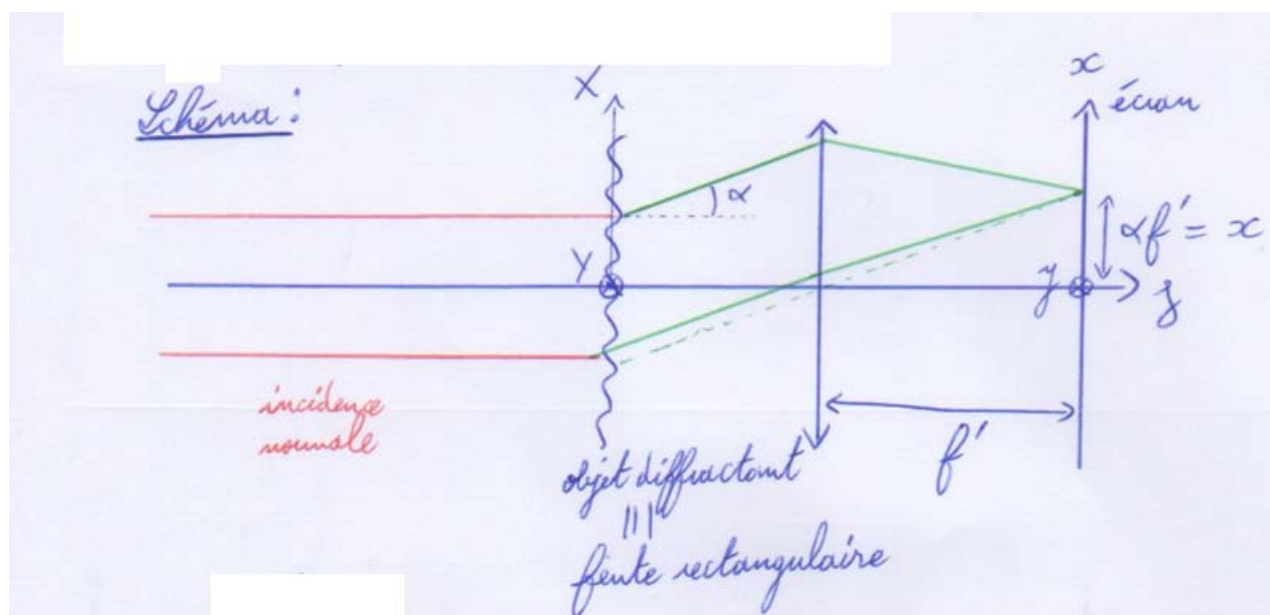 Schéma :
X
x
écran
α
αf' = x
Y
y
z
incidence
normale
f'
objet diffractant
|||
fente rectangulaire